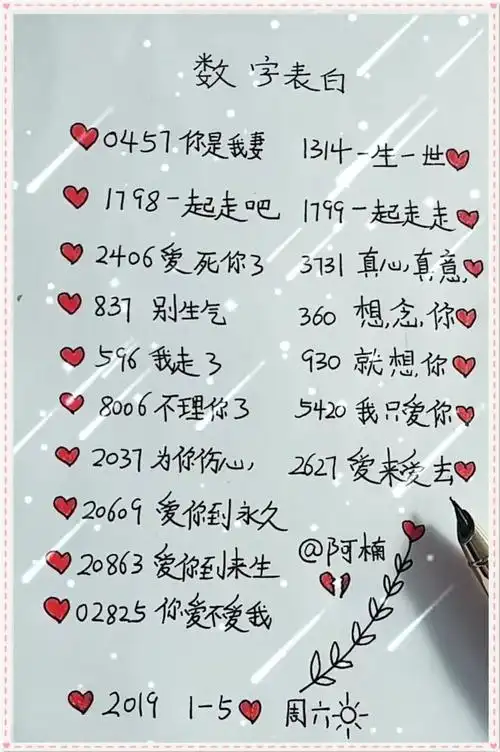 数字表白
0457 你是我妻 1314 一生一世
1798 一起走吧 1799 一起走走
2406 爱死你了 3731 真心真意
837 别生气 360 想念你
596 我走了 930 就想你
8006 不理你了 5420 我只爱你
2037 为你伤心 2627 爱来爱去
20609 爱你到永久
20863 爱你到来生 @阿楠
02825 你爱不爱我
2019 1-5 周六